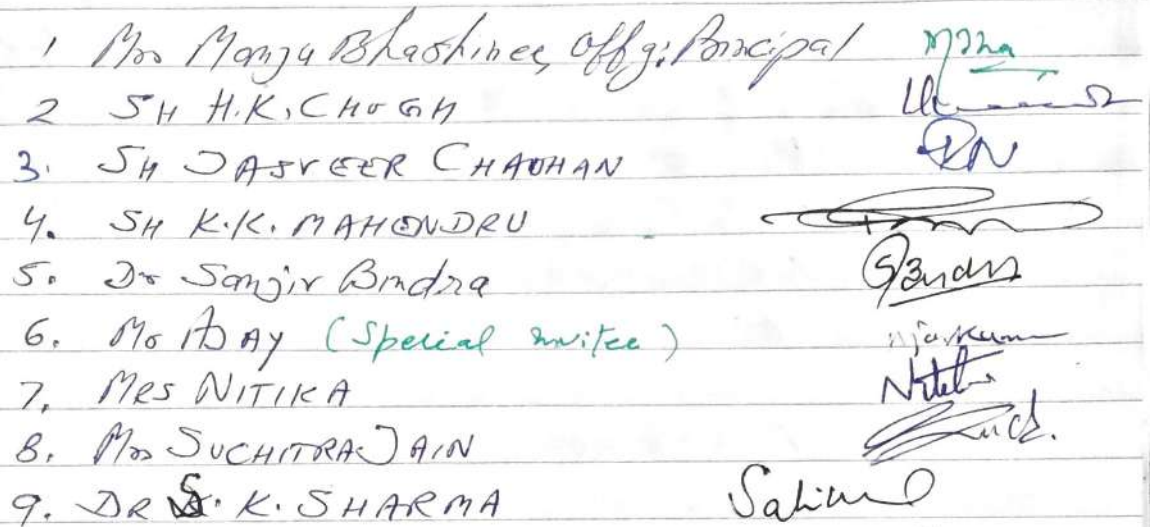 1 Mrs Manju Bhashinee, Offg: Principal
2 SH H.K. CHUGH
3. SH JASVEER CHAUHAN
4. SH K.K. MAHENDRU
5. Dr Sanjiv Bindra
6. Mr AJAY (Special invitee)
7. MRS NITIKA
8. Mrs SUCHITRA JAIN
9. DR S. K. SHARMA